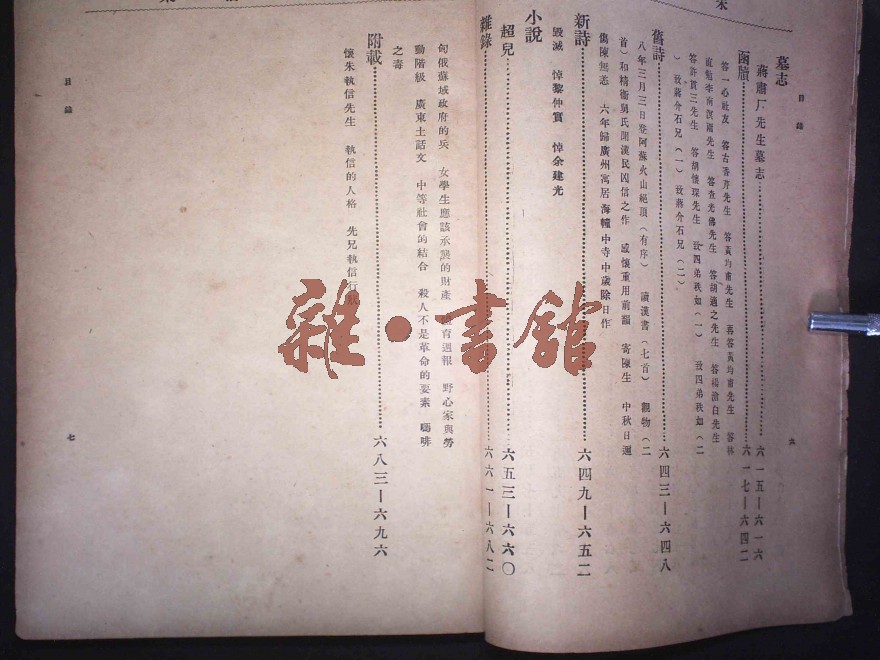 目錄
墓志
蔣肅厂先生墓志
六一五—六一六
函牘
六一七—六四二
答一心社友 答古香芹先生 答黃均甫先生 再答黃均甫先生 答林
先生 答查光佛先生 答胡適之先生 答楊滄白先生
答許貫三先生 答胡懷琛先生 致四弟秩如(一) 致四弟秩如(二
)致蔣介石兄(一) 致蔣介石兄(二)
舊詩
六四三—六四八
八年三月三日登阿蘇火山絕頂(有序) 讀漢書(七首) 觀物(二
首)和精衛舅氏聞漢民凶信之作 感懷重用前韻 寄陳生 中秋日週
傷陳無恙 六年歸廣州寓居海幢中寺中歲除日作
新詩
六四九—六五二
毀滅 悼黎仲實 悼余建光
小說
超兒
六五三—六六〇
雜錄
六六一—六八二
匈俄蘇域政府的兵 女學生應該承襲的財產 育週報 野心家與勞
動階級 廣東土話文 中等社會的結合 殺人不是革命的要素 嗎啡
之毒
附載
六八三—六九六
懷朱執信先生 執信的人格 先兄執信行
目錄
七
雜•書館